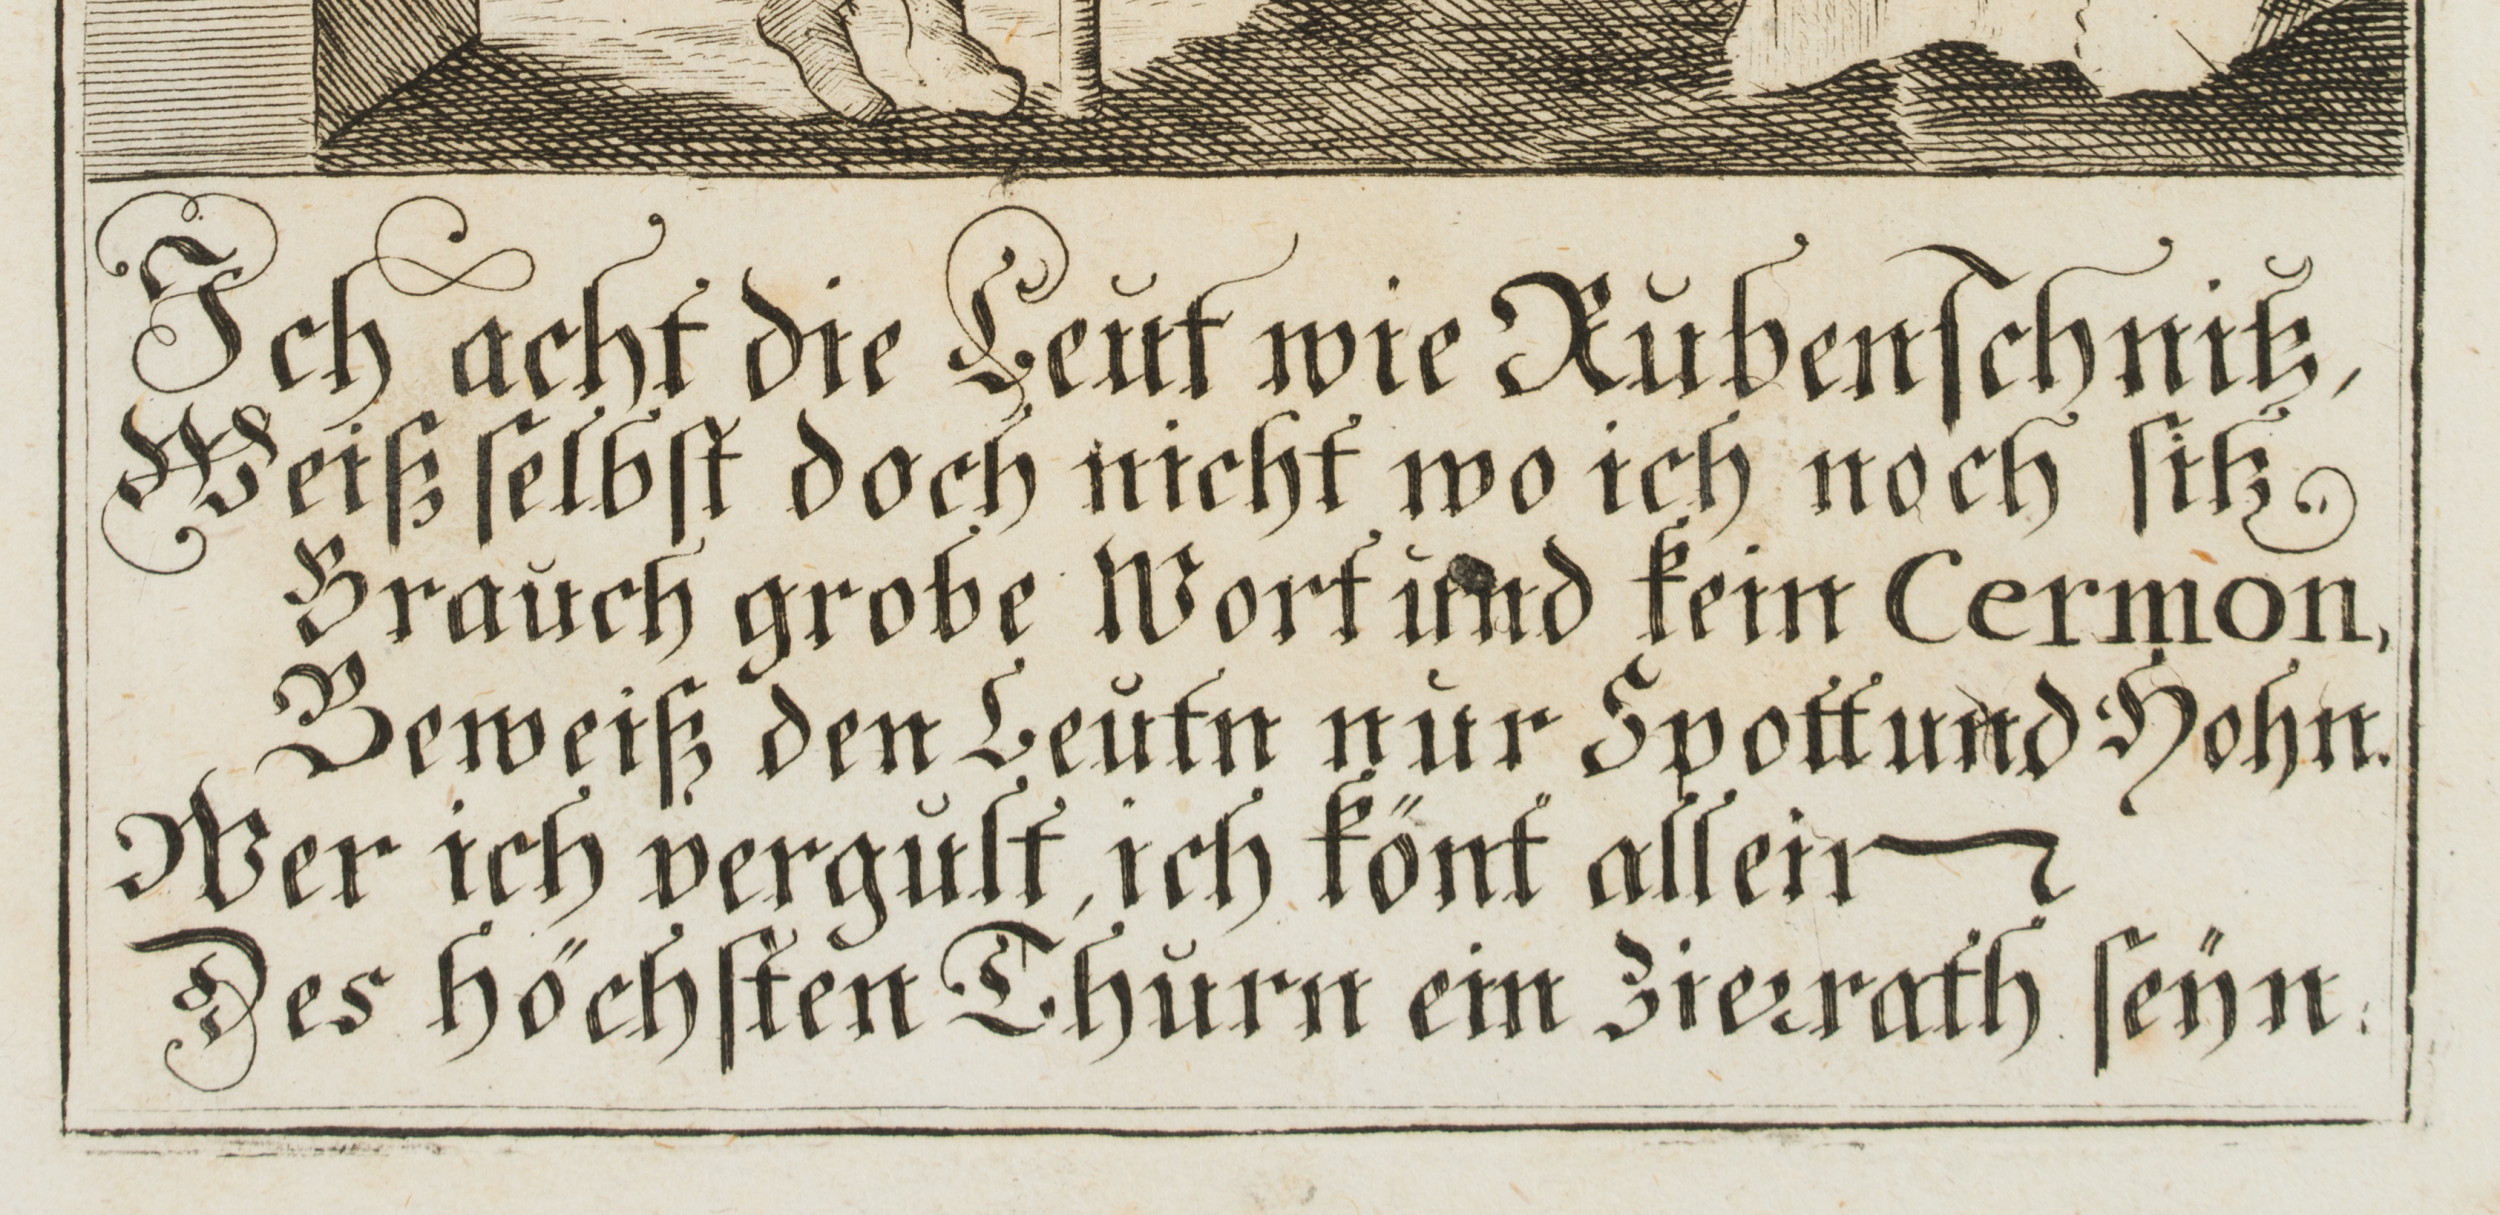 Ich acht die Leut wie Rubenschnitz,
Weiß selbst doch nicht wo ich noch sitz
Brauch grobe Wort und kein Cermon,
Beweiß den Leutn nur Spott und Hohn.
Wer ich vergult, ich könt allein
Des höchsten Thurn ein Zierrath seÿn.